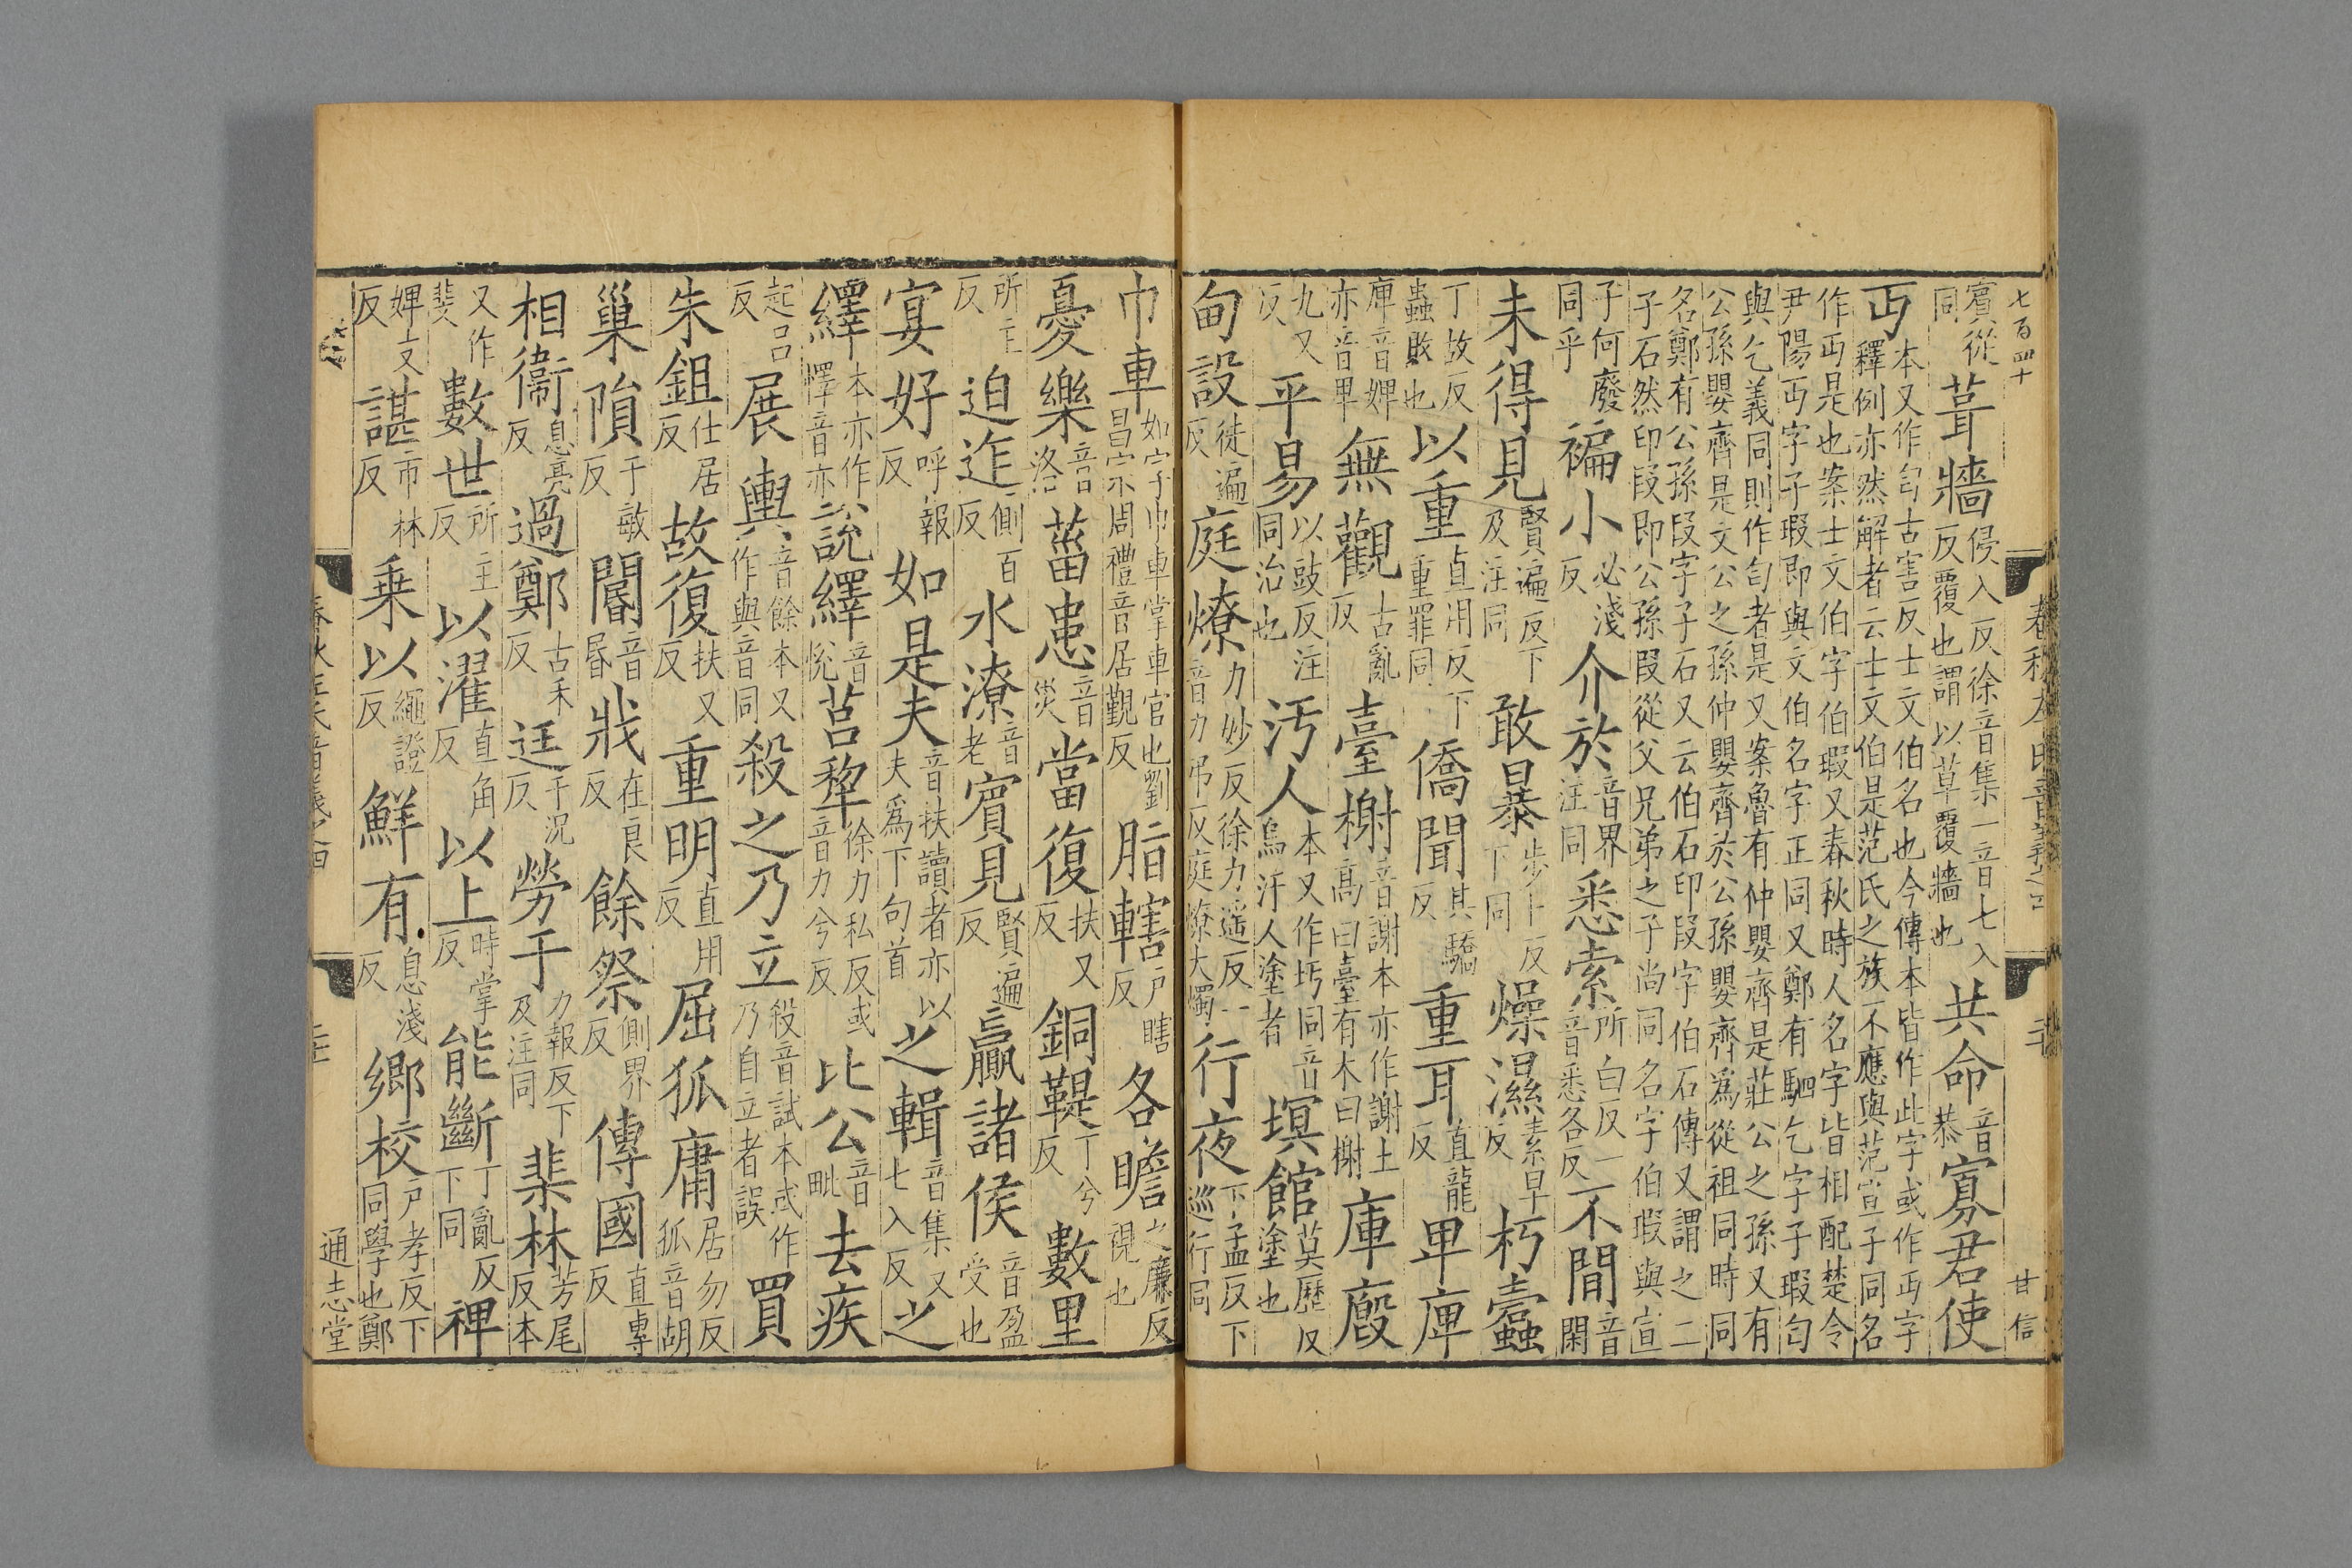 七百四十
春秋左氏音義之四
甘信
賓從同葺牆侵入反徐音集一音七入反覆也謂以草覆牆也共命音恭寡君使
丏本又作匄古害反士文伯名也今傳本皆作此字或作丏字釋例亦然解者云士文伯是范氏之族不應與范宣子同名
作丏是也案士文伯字伯瑕又春秋時人名字皆相配楚令尹陽丏字子瑕即與文伯名字正同又鄭有駟乞字子瑕匄
與乞義同則作匄者是又案魯有仲嬰齊是莊公之孫又有公孫嬰齊是文公之孫仲嬰齊於公孫嬰齊為從祖同時同
名鄭有公孫段字子石又云伯石印段字伯石傳又謂之二子石然印段即公孫段從父兄弟之子尚同名字伯瑕與宣
子何廢同乎褊小必淺反介於音界注同悉索所白反一音悉各反不間音閑
未得見賢遍反下及注同敢暴步卜反下同燥濕素早反朽蠹
丁故反蟲敗也以重直用反下重罪同僑聞其驕反重耳直龍反卑庳
庳音婢亦音卑無觀古亂反臺榭音謝本亦作謝土高曰臺有木曰榭庫廄
九又反平易以豉反注同治也汚人本又作圬同音烏汙人塗者塓館莫歷反塗也
甸設徒遍反庭燎力妙反徐力遥反一音力弔反庭燎大燭行夜下孟反下巡行同
巾車如字巾車掌車官也劉昌宗周禮音居覲反脂轄户瞎反各瞻之廉反視也
憂樂音洛葘患音災當復扶又反銅鞮丁兮反數里
所主反迫迮側百反水潦音老賓見賢遍反贏諸侯音盈受也
宴好呼報反如是夫音扶讀者亦以夫為下句首之輯音集又七入反之
繹本亦作懌音亦說繹音悅莒犂徐力私反或音力兮反比公音毗去疾
起呂反展輿音餘本又作與音同殺之乃立殺音試本或作乃自立者誤買
朱鉏仕居反故復扶又反重明直用反屈狐庸居勿反狐音胡
巢隕于敏反閽音昏戕在良反餘祭側界反傳國直專反
相衞息亮反過鄭古禾反迋于況反勞于力報反下及注同棐林芳尾反本
又作斐數世所主反以濯直角反以上時掌反能斷丁亂反下同裨
婢支反諶市林反乗以繩證反鮮有息淺反鄉校户孝反下同學也鄭
春秋左氏音義之四
通志堂